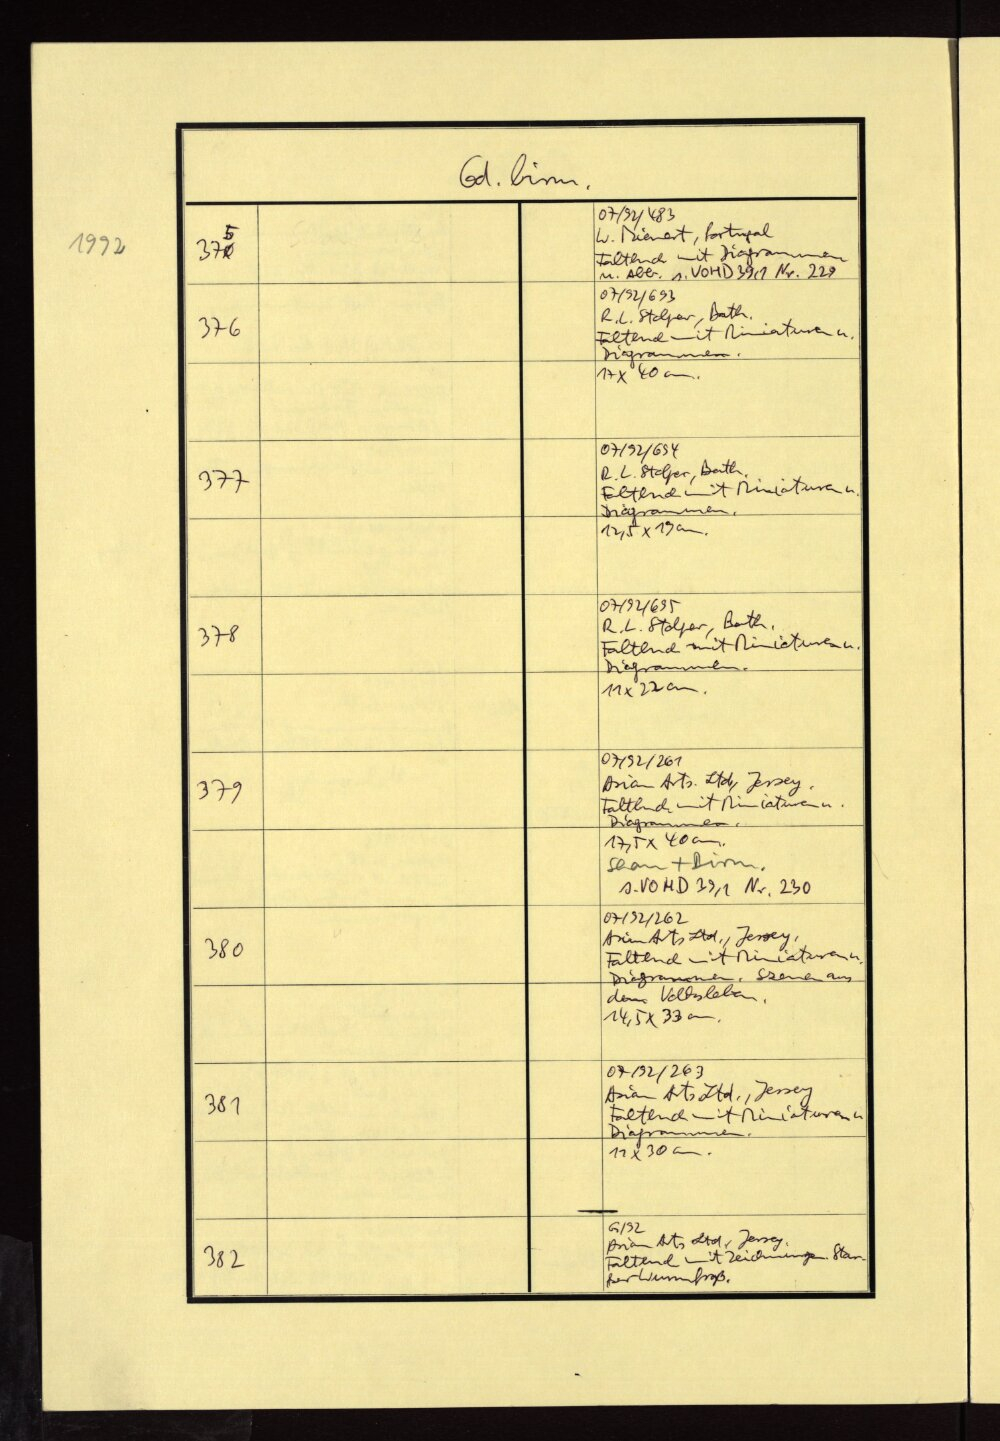 Cod. birm.
1992
375
07/92/483
W. Meinert, Portugal
Faltbuch mit Diagrammen
u. Abb. s. VOHD 39,1 Nr. 229
376
07/92/693
R.L. Stolper, Bath.
Faltbuch mit Miniaturen u.
Diagrammen.
17 x 40 cm.
377
07/92/694
R.L. Stolper, Bath.
Faltbuch mit Miniaturen u.
Diagrammen.
12,5 x 19 cm.
378
07/92/695
R.L. Stolper, Bath.
Faltbuch mit Miniaturen u.
Diagrammen.
11 x 22 cm.
379
07/92/261
Asian Arts. Ltd, Jersey.
Faltbuch mit Miniaturen u.
Diagrammen.
17,5 x 40 cm.
Shan + Birm.
s. VOHD 39,1 Nr. 230
380
07/92/262
Asian Arts Ltd., Jersey.
Faltbuch mit Miniaturen u.
Diagrammen. Szenen aus
dem Volksleben.
14,5 x 33 cm.
381
07/92/263
Asian Arts Ltd., Jersey
Faltbuch mit Miniaturen u
Diagrammen.
11 x 30 cm.
382
G/92
Asian Arts Ltd., Jersey.
Faltbuch mit Zeichnungen. Star-
ker Wurmfraß.